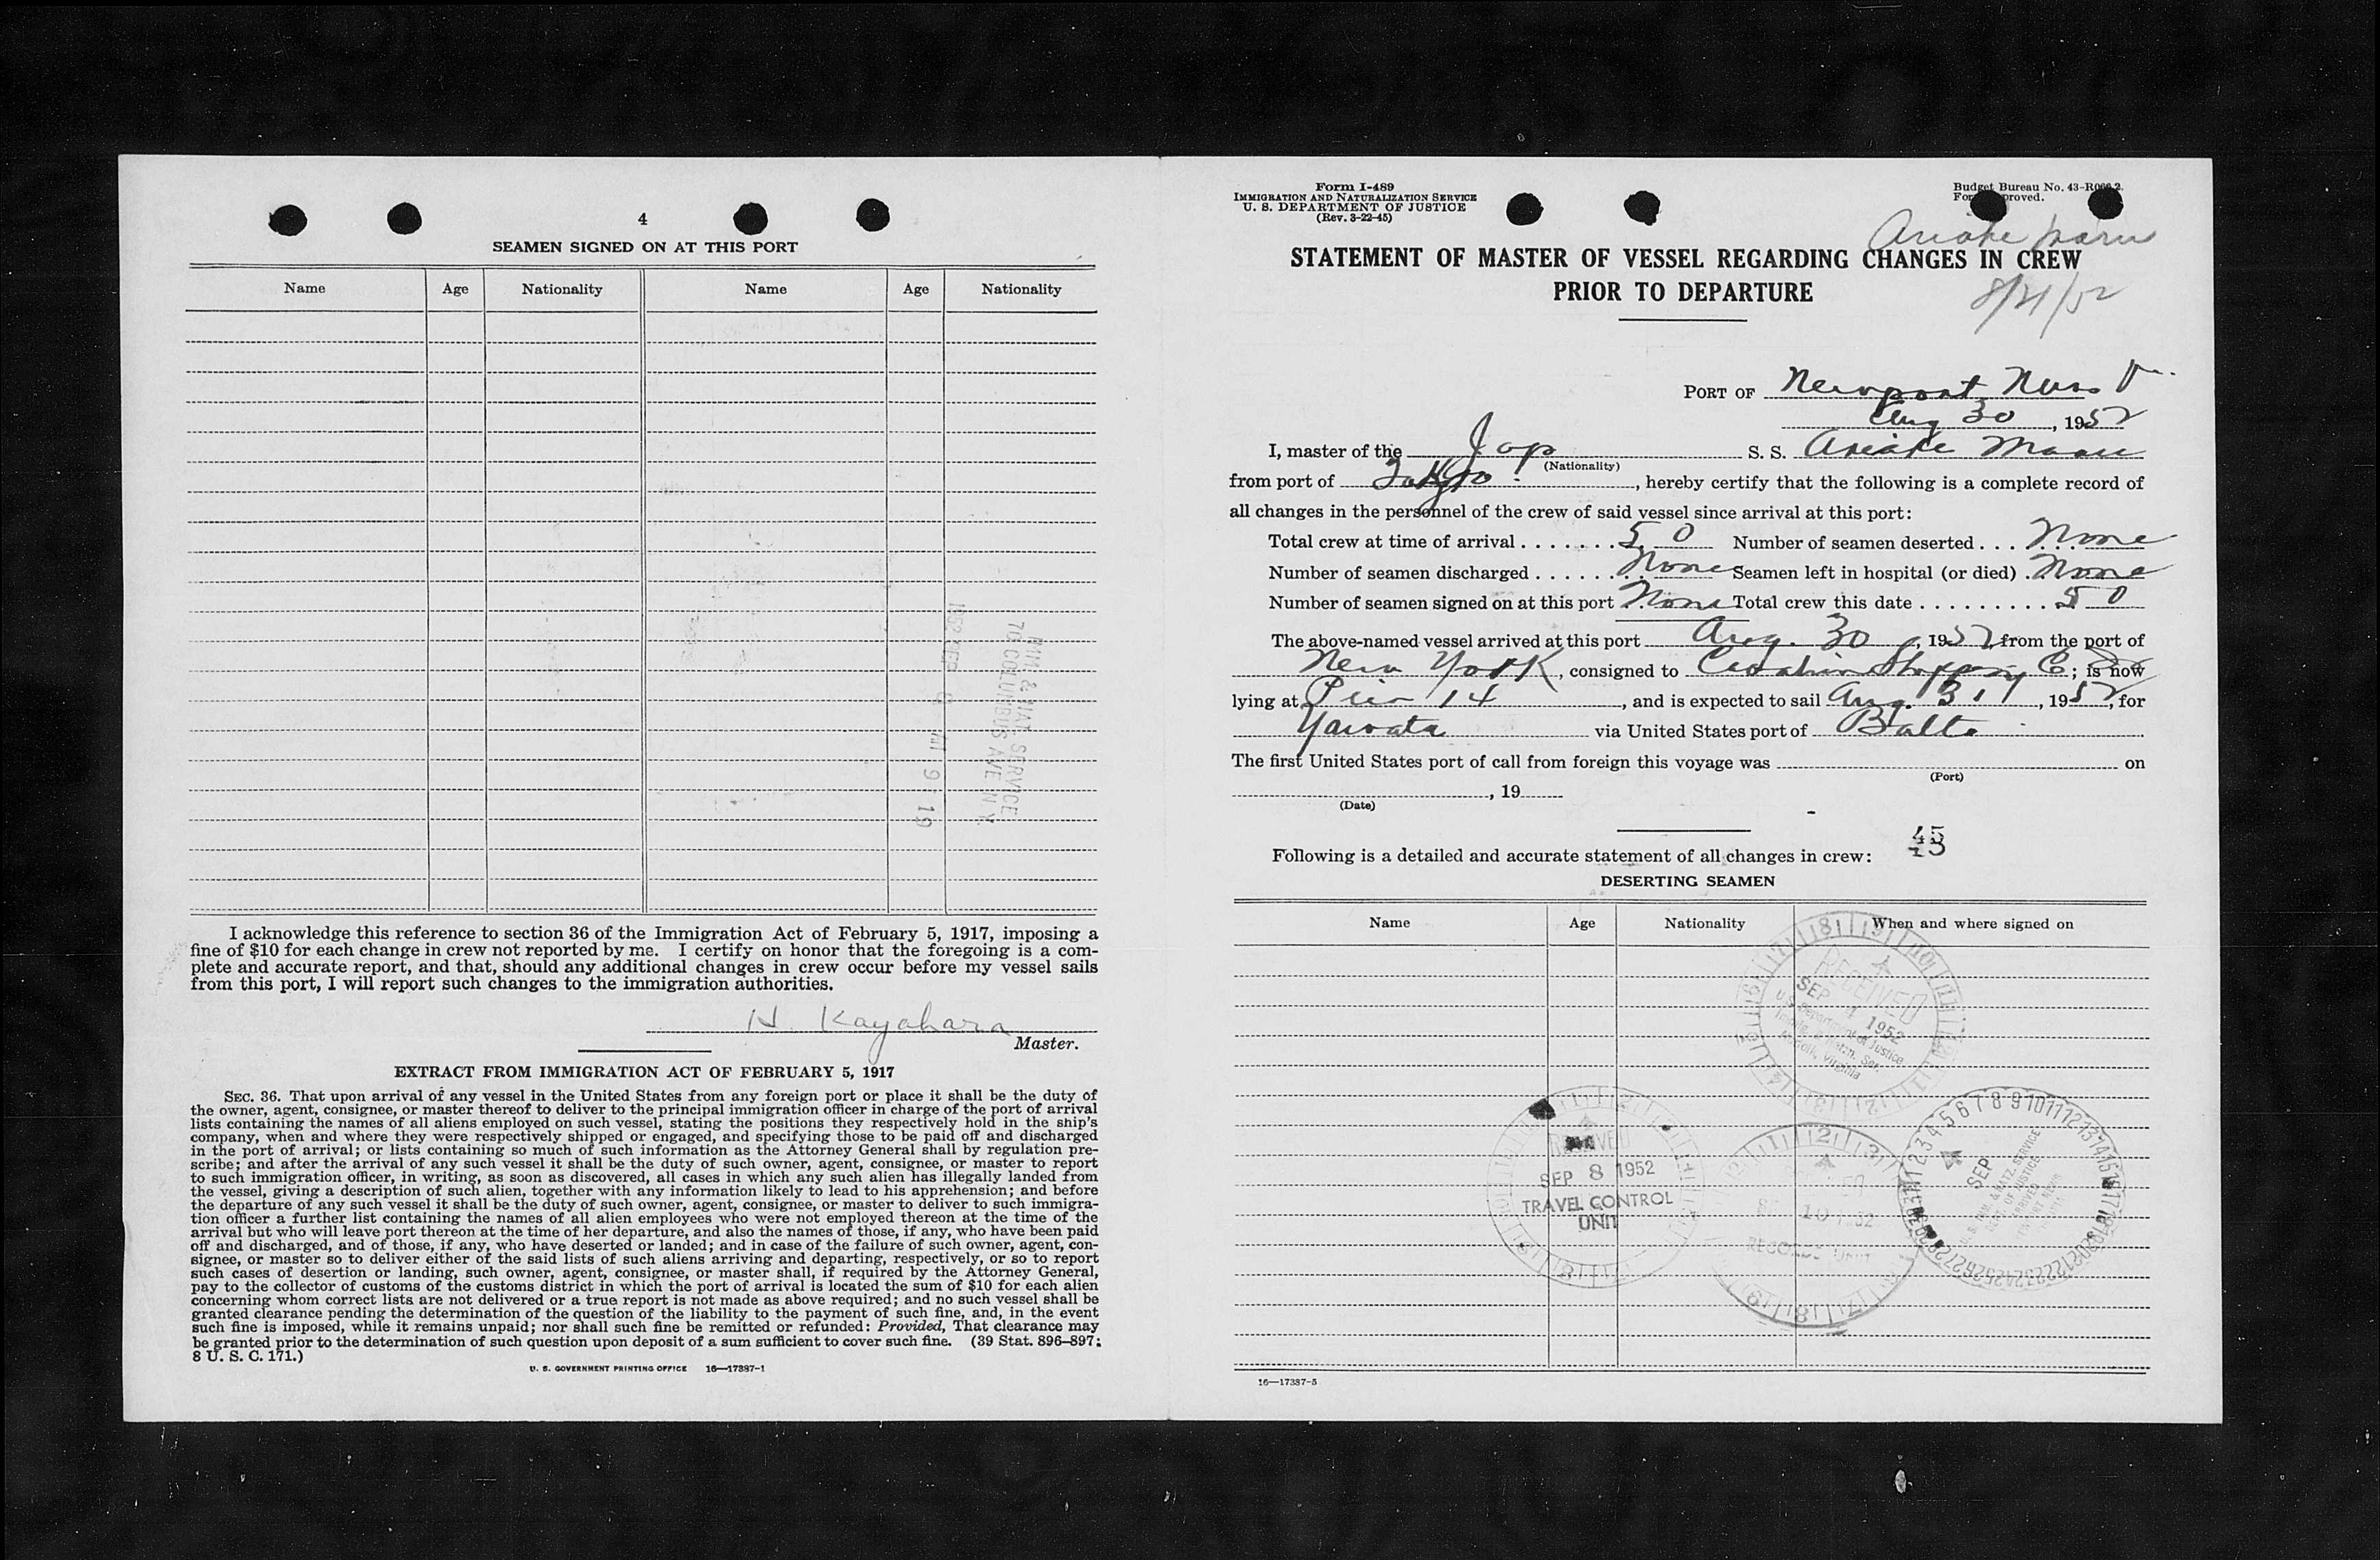 4
SEAMEN SIGNED ON AT THIS PORT
Name Age Nationality Name Age Nationality
IMM. & NAT. SERVICE
70 COLUMBUS AVE N.Y.
I acknowledge this reference to section 36 of the Immigration Act of February 5, 1917, imposing a
fine of $10 for each change in crew not reported by me. I certify on honor that the foregoing is a com-
plete and accurate report, and that, should any additional changes in crew occur before my vessel sails
from this port, I will report such changes to the immigration authorities.
H. Kayahara
Master.
EXTRACT FROM IMMIGRATION ACT OF FEBRUARY 5, 1917
SEC. 36. That upon arrival of any vessel in the United States from any foreign port or place it shall be the duty of
the owner, agent, consignee, or master thereof to deliver to the principal immigration officer in charge of the port of arrival
lists containing the names of all aliens employed on such vessel, stating the positions they respectively hold in the ship's
company, when and where they were respectively shipped or engaged, and specifying those to be paid off and discharged
in the port of arrival; or lists containing so much of such information as the Attorney General shall by regulation pre-
scribe; and after the arrival of any such vessel it shall be the duty of such owner, agent, consignee, or master to report
to such immigration officer, in writing, as soon as discovered, all cases in which any such alien has illegally landed from
the vessel, giving a description of such alien, together with any information likely to lead to his apprehension; and before
the departure of any such vessel it shall be the duty of such owner, agent, consignee, or master to deliver to such immigra-
tion officer a further list containing the names of all alien employees who were not employed thereon at the time of the
arrival but who will leave port thereon at the time of her departure, and also the names of those, if any, who have been paid
off and discharged, and of those, if any, who have deserted or landed; and in case of the failure of such owner, agent, con-
signee, or master so to deliver either of the said lists of such aliens arriving and departing, respectively, or so to report
such cases of desertion or landing, such owner, agent, consignee, or master shall, if required by the Attorney General,
pay to the collector of customs of the customs district in which the port of arrival is located the sum of $10 for each alien
concerning whom correct lists are not delivered or a true report is not made as above required; and no such vessel shall be
granted clearance pending the determination of the question of the liability to the payment of such fine, and, in the event
such fine is imposed, while it remains unpaid; nor shall such fine be remitted or refunded: Provided, That clearance may
be granted prior to the determination of such question upon deposit of a sum sufficient to cover such fine. (39 Stat. 896–897;
8 U. S. C. 171.)
U. S. GOVERNMENT PRINTING OFFICE 16—17387-1
Form I-489
IMMIGRATION AND NATURALIZATION SERVICE
U. S. DEPARTMENT OF JUSTICE
(Rev. 3-22-45)
Budget Bureau No. 43-R
Ariake Maru
STATEMENT OF MASTER OF VESSEL REGARDING CHANGES IN CREW
PRIOR TO DEPARTURE
8/31/52
PORT OF Newport News Va.
Aug 30, 1952
I, master of the Jap S. S. Ariake Maru
(Nationality)
from port of Tokyo, hereby certify that the following is a complete record of
all changes in the personnel of the crew of said vessel since arrival at this port:
Total crew at time of arrival . . . . . . . 50 Number of seamen deserted . . . None
Number of seamen discharged . . . . . . . None Seamen left in hospital (or died) . None
Number of seamen signed on at this port None Total crew this date . . . . . . . . . 50
The above-named vessel arrived at this port Aug. 30, 1952, from the port of
New York, consigned to Shipping Co; is now
lying at Pier 14, and is expected to sail Aug. 31, 1952, for
Yawata via United States port of Balto
The first United States port of call from foreign this voyage was on
(Port)
, 19
(Date)
45
Following is a detailed and accurate statement of all changes in crew:
DESERTING SEAMEN
Name Age Nationality When and where signed on
RECEIVED
SEP 4 1952
U.S. Department of Justice
Virginia
RECEIVED
SEP 8 1952
TRAVEL CONTROL
UNIT
RECORDS UNIT
SEP
16—17387-5